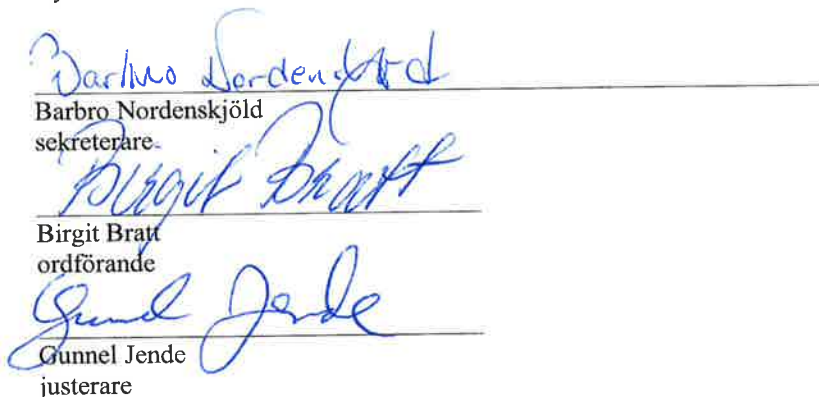 Barbro Nordenskjöld
Barbro Nordenskjöld
sekreterare
Birgit Bratt
Birgit Bratt
ordförande
Gunnel Jende
Gunnel Jende
justerare